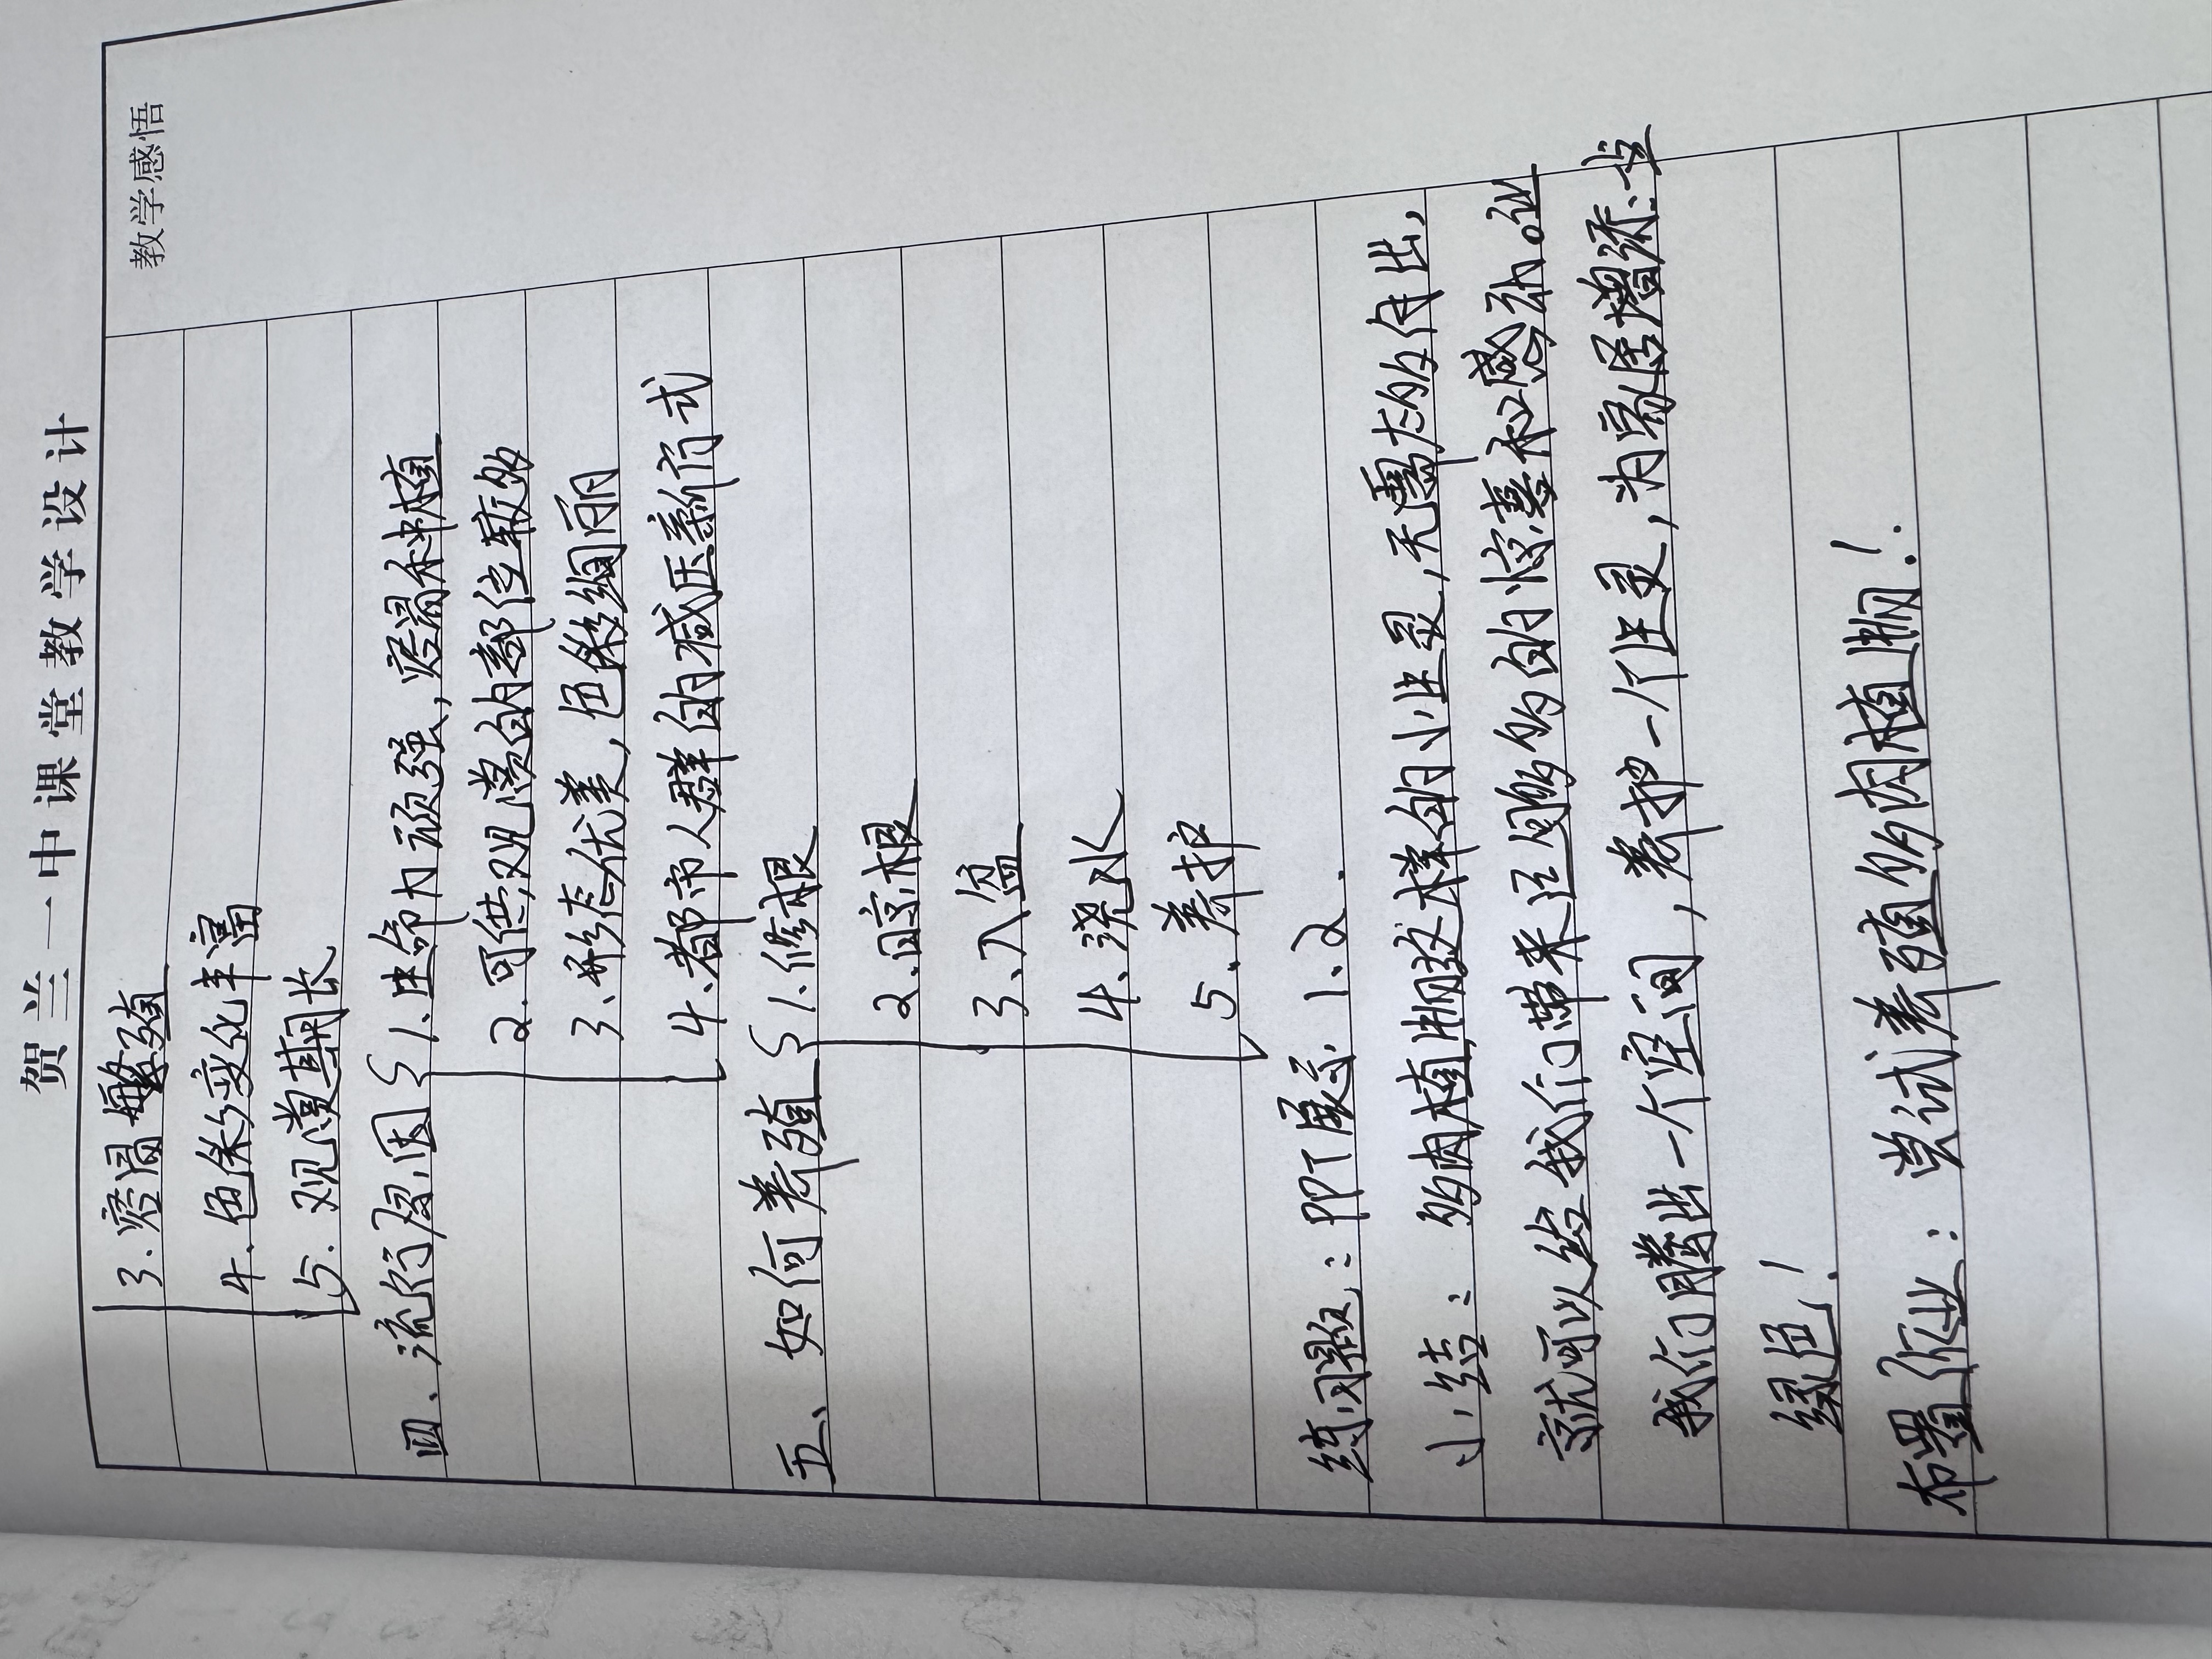 贺兰一中课堂教学设计
教学感悟
3.容易繁殖
4.色彩变化丰富
5.观赏期长
四、流行原因 1.生命力顽强,容易种植
2.可供观赏的部位较多
3.形态优美,色彩绚丽
4.都市人群的减压新方式
五、如何养殖 1.修根
2.晾根
3.入盆
4.浇水
5.养护
练习题:PPT展示1.2.
小结:多肉植物这样的小生灵,无需太多的付出,
就可以给我们带来足够多的的惊喜和感动。让
我们腾出一个空间,养护一个生灵,为家居增添一点
绿色!
布置作业:尝试养殖多肉植物!